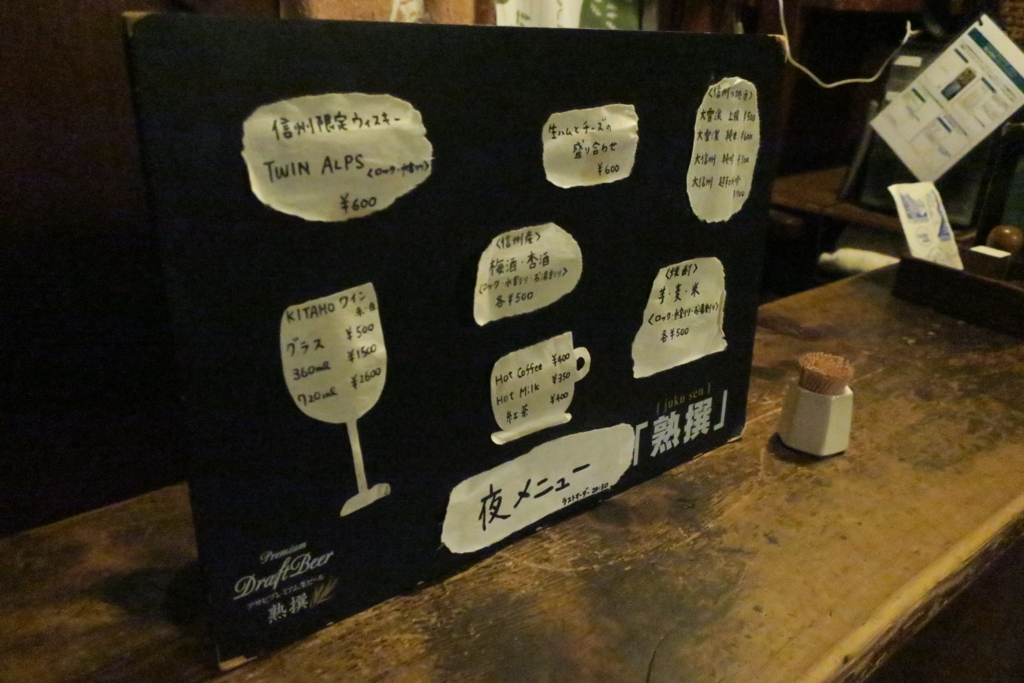 信州限定ウィスキー
TWIN ALPS <ロック・水割り>
¥600
生ハムとチーズの
盛り合わせ
¥600
<信州の地酒>
大雪渓 上撰 ¥500
大雪渓 純米 ¥600
大信州
大信州
<信州産>
梅酒・杏酒
<ロック・水割り・お湯割り>
各¥500
<焼酎>
芋・麦・米
<ロック・水割り・お湯割り>
各¥500
KITAHO ワイン
赤・白
グラス ¥500
360ml ¥1500
720ml ¥2600
Hot Coffee ¥400
Hot Milk ¥350
紅茶 ¥400
夜メニュー
ラストオーダー 20:30
[juku sen]
「熟撰」
Premium
Draft Beer
アサヒプレミアム生ビール
熟撰